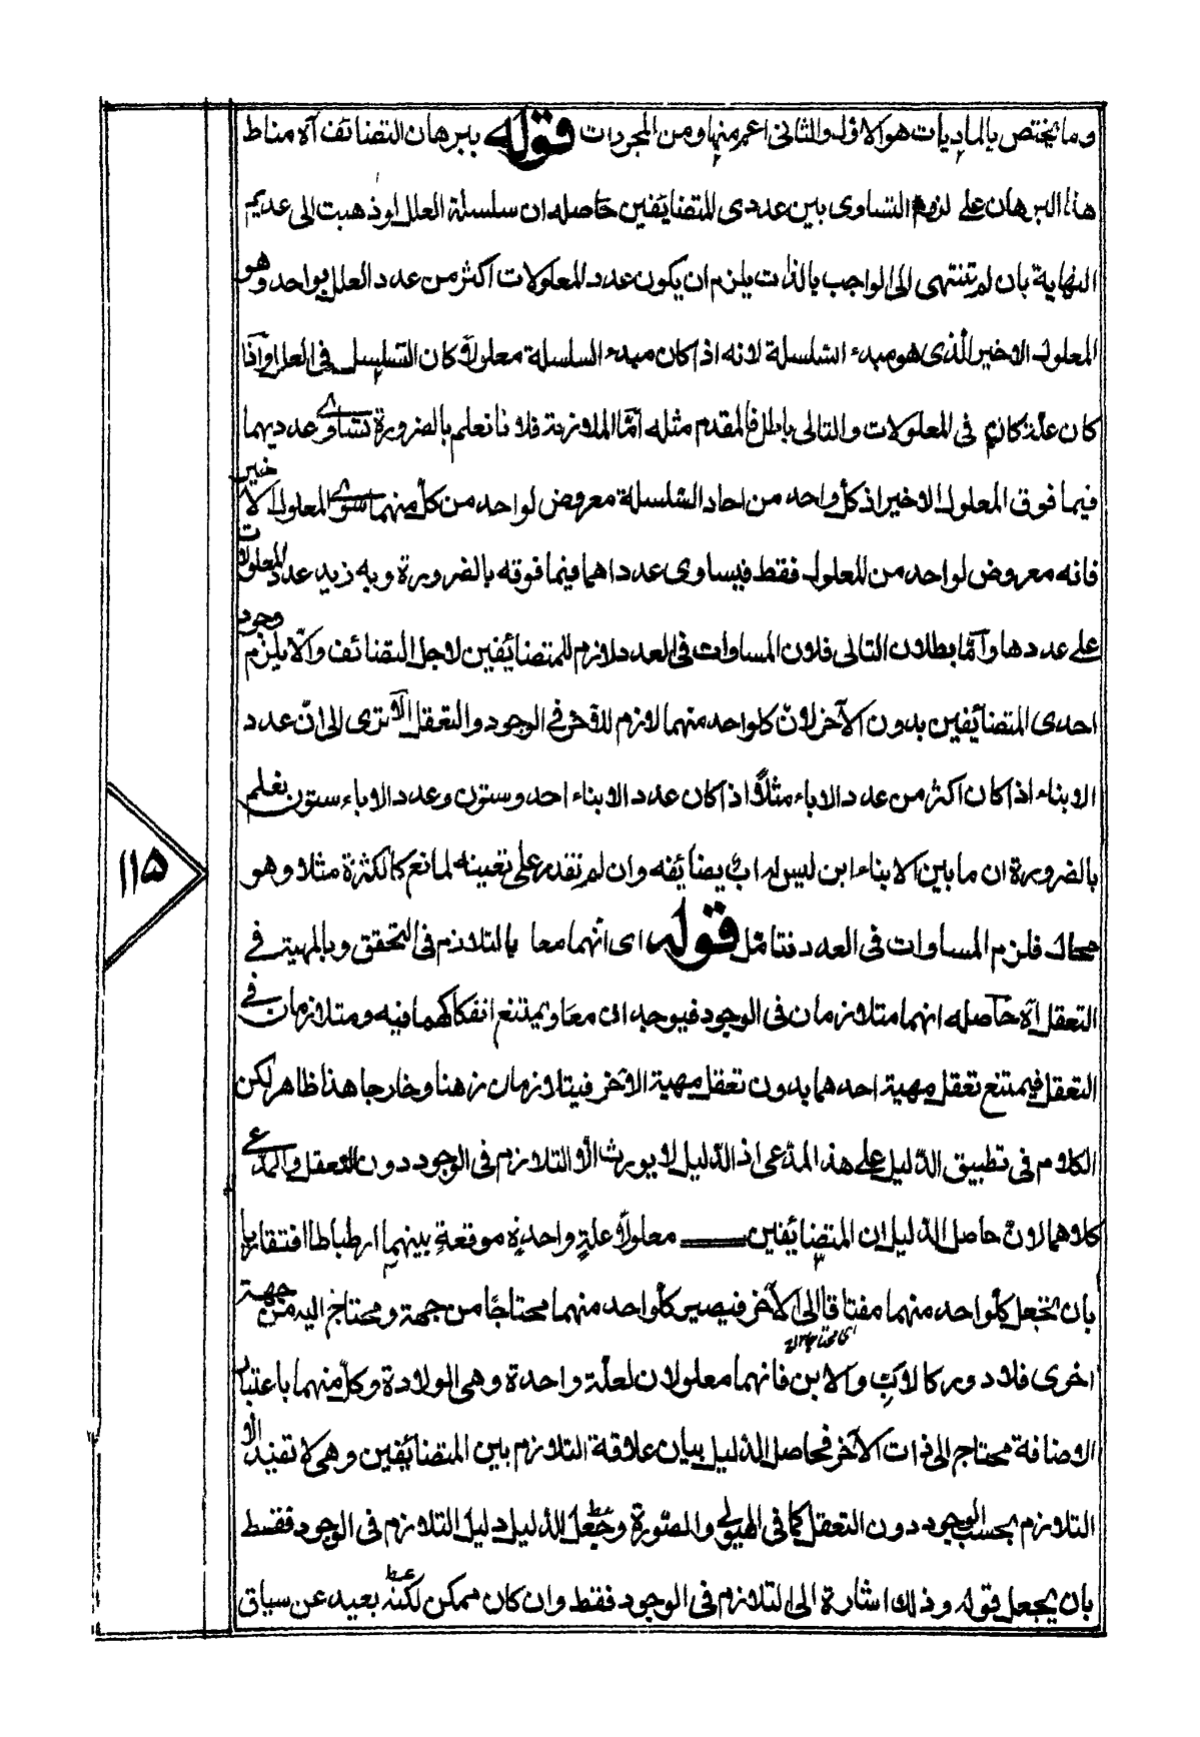 وما يختص بالماديات هو الاول والثانى اعم منها ومن المجردات قوله ببرهان التضائف آه مناط
هذا البرهان على لزوم التساوى بين عددى المتضائفين حاصله ان سلسلة العلل لو ذهبت الى عديم
النهاية بان لم تنتهى الى الواجب بالذات يلزم ان يكون عدد المعلولات اكثر من عدد العلل بواحد وهو
المعلول الاخير الذى هو مبدء السلسلة لانه اذ اكان مبدء السلسلة معلولاً كان التسلسل فى العلل واذا
كان علة كان فى المعلولات والتالى باطل فالمقدم مثله امّا الملازمة فلانا نعلم بالضرورة تساوى عدديهما
فيما فوق المعلول الاخير اذ كل واحد من احاد السلسلة معروض لواحد من كل منهما سوى المعلول الاخير
فانه معروض لواحد من المعلول فقط فيساوى عدداهما فيما فوقه بالضرورة وبه زيد عدد المعلولات
على عددها وامّا بطلان التالى فلان المساوات فى العدد لازم للمتضائفين لاجل التضائف والّا يلزم وجود
احدى المتضائفين بدون الآخر لانّ كلواحد منهما لازم للآخر فى الوجود والتعقل الآ ترى الى انّ عدد
الابناء اذ اكان اكثر من عدد الاباء مثلاً اذ اكان عدد الابناء احد وستون وعدد الاباء ستون نعلم
بالضرورة ان ما بين الابناء ابن ليس له اب يضائفه وان لم نقدر على تعيينه لمانع كالكثرة مثلا وهو
محال فلزم المساوات فى العدد فتامّل قوله اى انّهما معا بالتلازم فى التحقق وبالمهية فى
التعقل آه حاصله انهما متلازمان فى الوجود فيوجد ان معا ويمتنع انفكاكهما فيه ومتلازمان فى
التعقل فيمتنع تعقل مهية احدهما بدون تعقل مهية الآخر فيتلازمان زهنا وخارجا هذا ظاهر لكن
الكلام فى تطبيق الدّليل على هذ المدّعى اذ الدّليل لا يورث الّا التلازم فى الوجود دون التعقل والمدّعى
كلاهما لانّ حاصل الدّليل ان المتضائفين معلولاً علةٍ واحدةٍ موقعةٍ بينهما ارطباطا افتقاريا
بان تجعل كلواحد منهما مفتاقا الى الآخر فيصير كلواحد منهما محتاجًا من جهة ومحتاج اليه من جهة
اى محتاجا ١٢
اخرى فلا دور كالاب والابن فانهما معلولان لعلّة واحدة وهى الولادة وكل منهما باعتبار
الاضافة محتاج الى ذات الآخر فحاصل الدّليل بيان علاقة التلازم بين المتضائفين وهى لا تفيد الّا
التلازم بحسب الوجود دون التعقل كما فى الهيولى والصّورة وجعل الدّليل دليل التلازم فى الوجود فقط
بان يجعل قوله وذلك اشارة الى التلازم فى الوجود فقط وان كان ممكن لكنّه بعيد عن سياق
١١٥